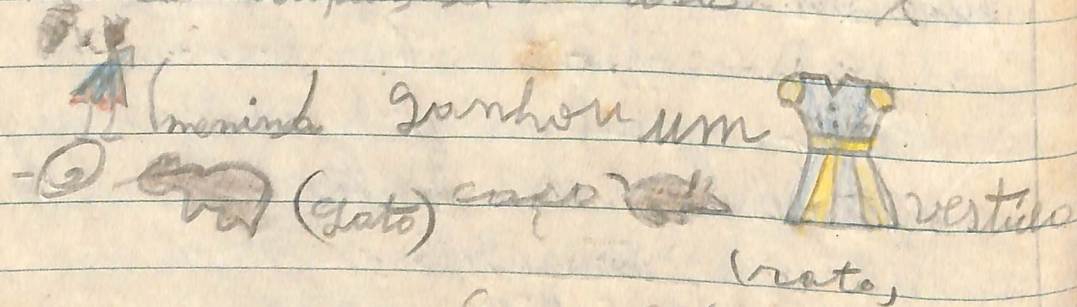 (menina) ganhou um vestido
- O (gato) caça
(rato)